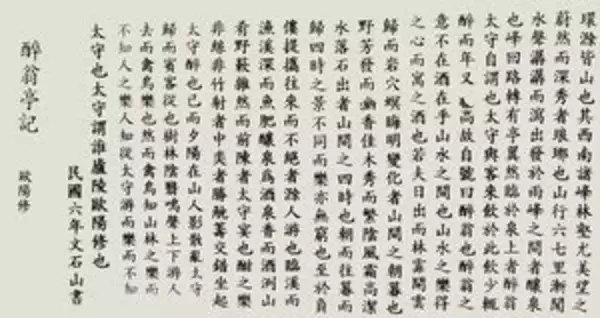 環滁皆山也其西南諸峰林壑尤美望之
蔚然而深秀者琅琊也山行六七里漸聞
水聲潺潺而瀉出發於兩峰之間者釀泉
也峰回路轉有亭翼然臨於泉上者醉翁
太守自謂也太守與客來飲於此飲少輒
醉而年又高故自號曰醉翁也醉翁之
意不在酒在乎山水之間也山水之樂得
之心而寓之酒也若夫日出而林霏開雲
歸而岩穴暝晦明變化者山間之朝暮也
野芳發而幽香佳木秀而繁陰風霜高潔
水落石出者山間之四時也朝而往暮而
歸四時之景不同而樂亦無窮也至於負
僂提攜往來而不絕者滁人游也臨溪而
漁溪深而魚肥釀泉為酒泉香而酒洌山
肴野蔌雜然而前陳者太守宴也酣之樂
非絲非竹射者中奕者勝觥籌交錯坐起
太守醉也已而夕陽在山人影散亂太守
歸而賓客從也樹林陰翳鳴聲上下游人
去而禽鳥樂也然而禽鳥知山林之樂而
不知人之樂人知從太守游而樂而不知
太守也太守謂誰廬陵歐陽修也
民國六年文石山書
醉翁亭記
歐陽修